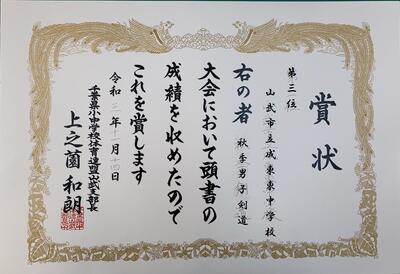 賞状
第三位
山武市立成東東中学校
右の者 秋季男子剣道
大会において頭書の
成績を収めたので
これを賞します
令和三年十一月十四日
千葉県小中学校体育連盟山武支部長
上之薗和朗